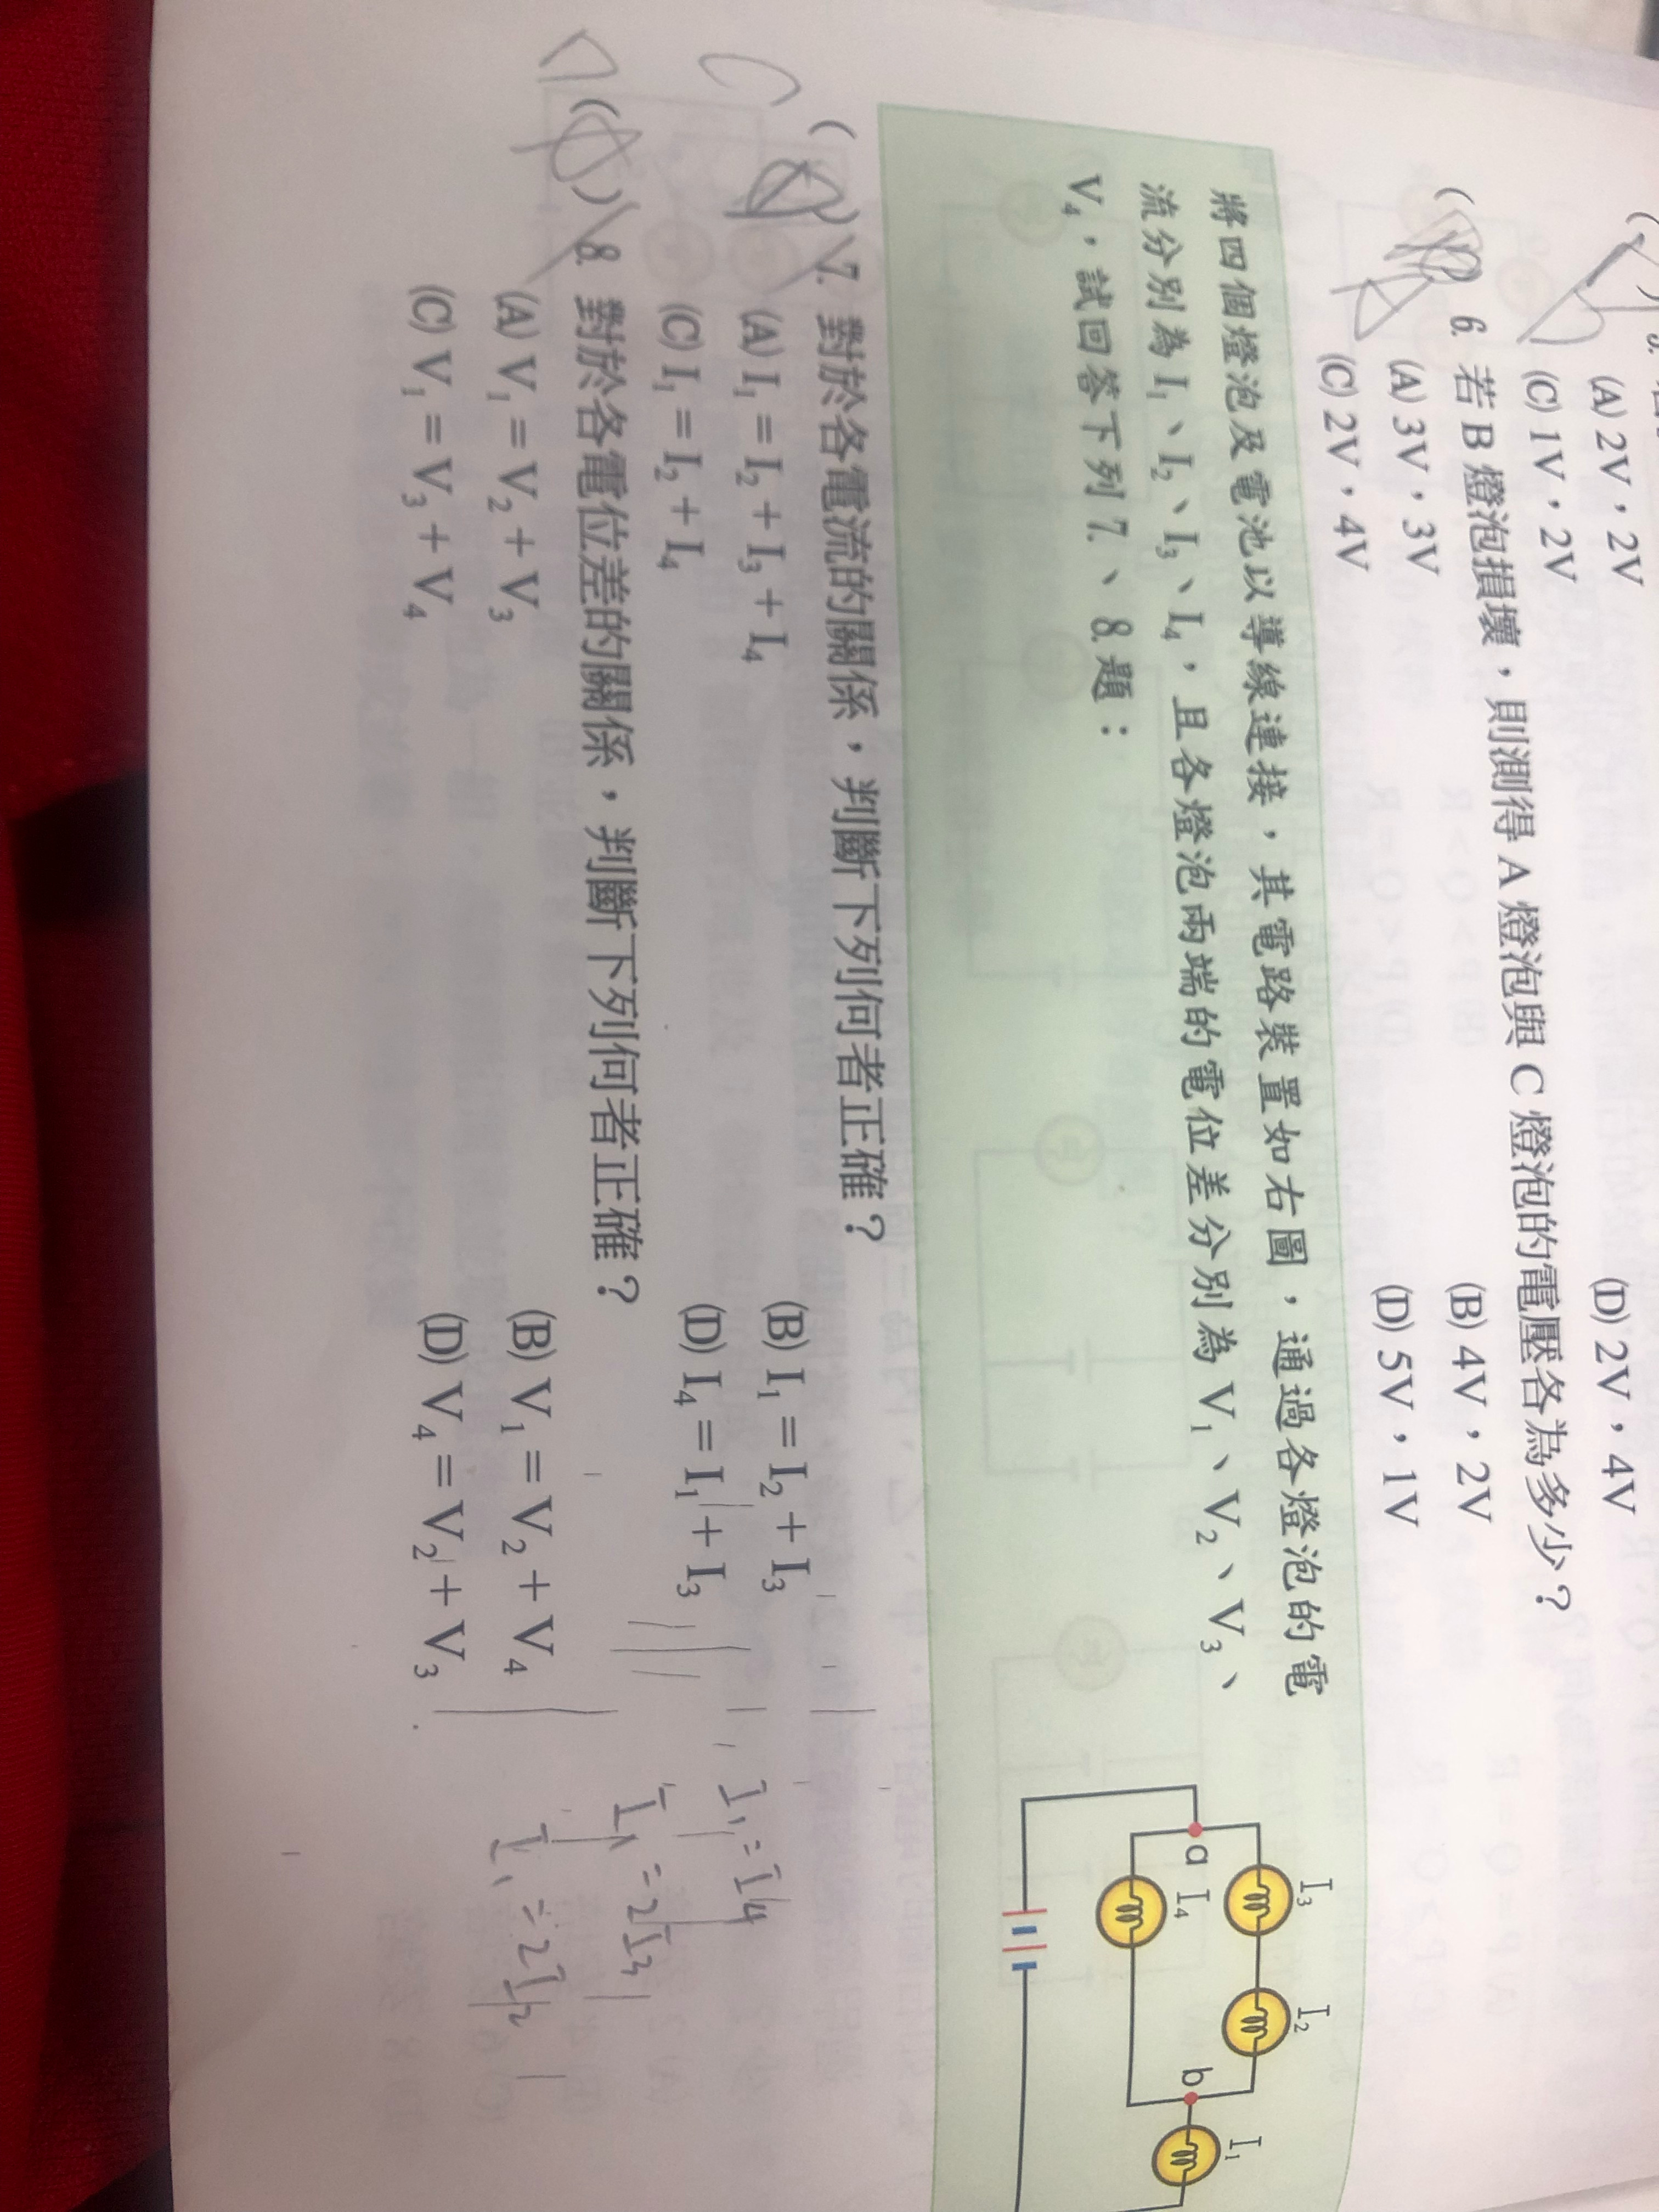 (A) 2V，2V
(D) 2V，4V
(C) 1V，2V
6. 若 B 燈泡損壞，則測得 A 燈泡與 C 燈泡的電壓各為多少？
(A) 3V，3V
(B) 4V，2V
(C) 2V，4V
(D) 5V，1V
將四個燈泡及電池以導線連接，其電路裝置如右圖，通過各燈泡的電
流分別為 I₁、I₂、I₃、I₄，且各燈泡兩端的電位差分別為 V₁、V₂、V₃、
V₄，試回答下列 7.、8.題：
I₃
I₂
a
I₄
b
I₁
7. 對於各電流的關係，判斷下列何者正確？
(A) I₁ = I₂ + I₃ + I₄
(B) I₁ = I₂ + I₃
(C) I₁ = I₂ + I₄
(D) I₄ = I₁ + I₃
8. 對於各電位差的關係，判斷下列何者正確？
(A) V₁ = V₂ + V₃
(B) V₁ = V₂ + V₄
(C) V₁ = V₃ + V₄
(D) V₄ = V₂ + V₃
I₁ = I4
= 2I3
I₁ = 2I2